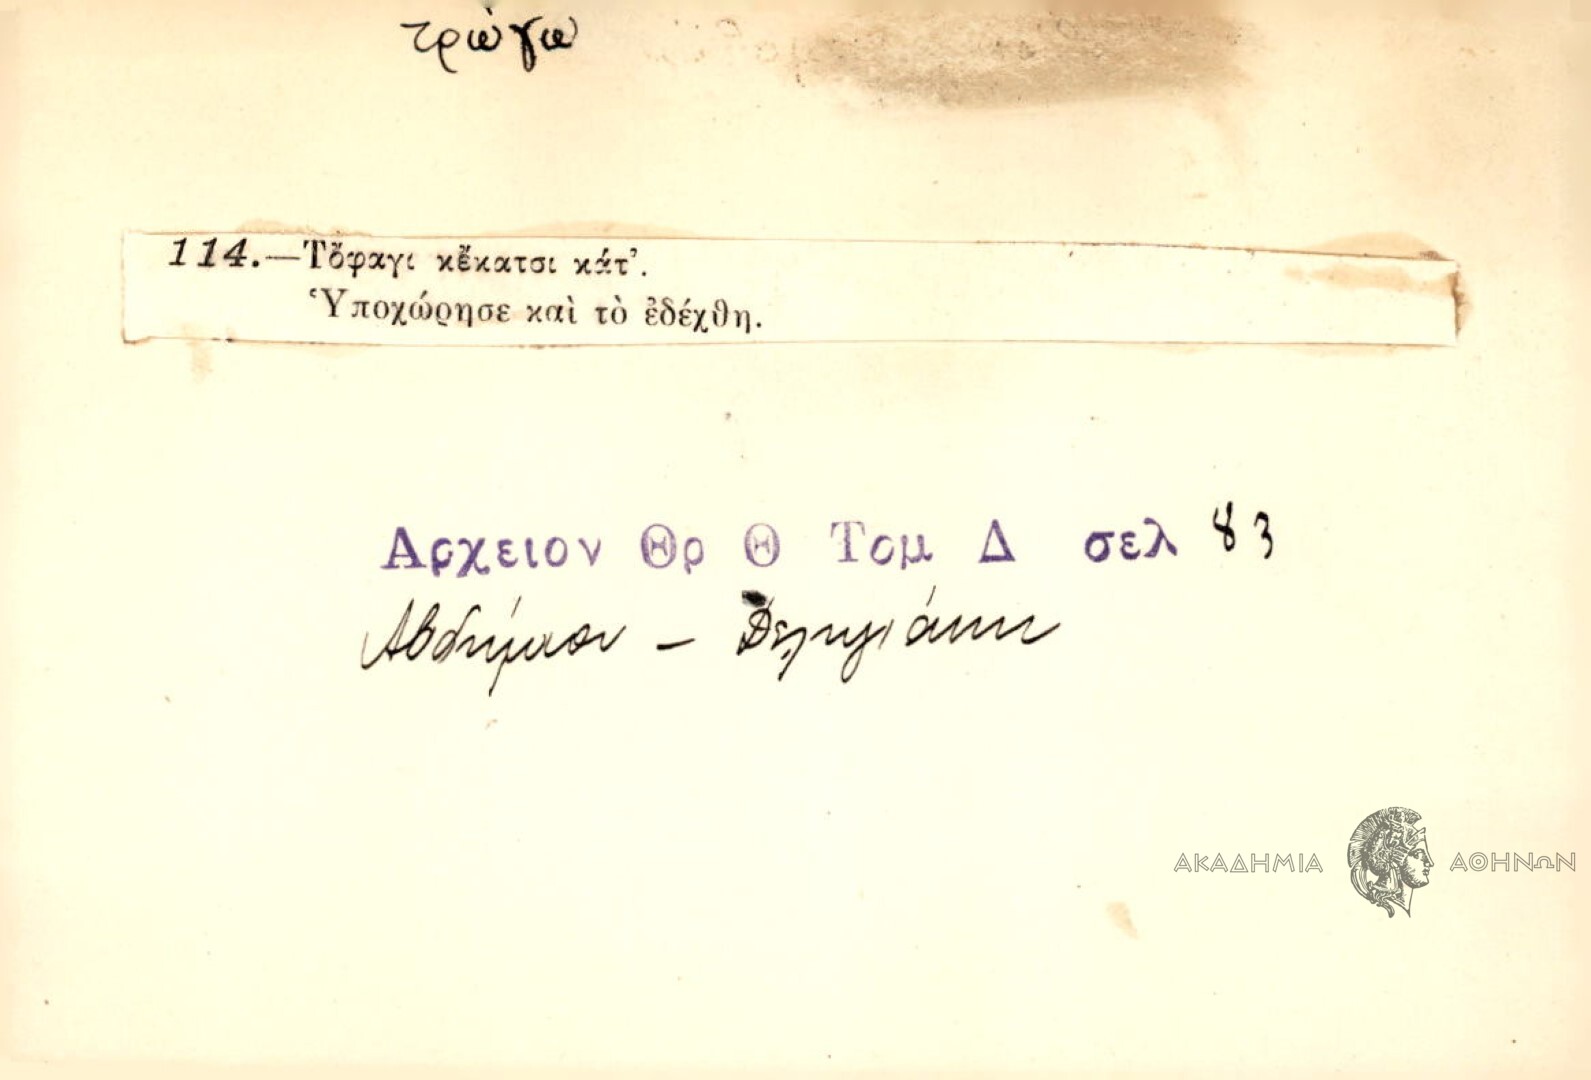 τρώγω
114.—Τὄφαγι κἔκατσι κάτ’.
Ὑποχώρησε καὶ τὸ ἐδέχθη.
Αρχειον Θρ Θ Τομ Δ σελ 83
ΑΚΑΔΗΜΙΑ ΑΘΗΝΩΝ